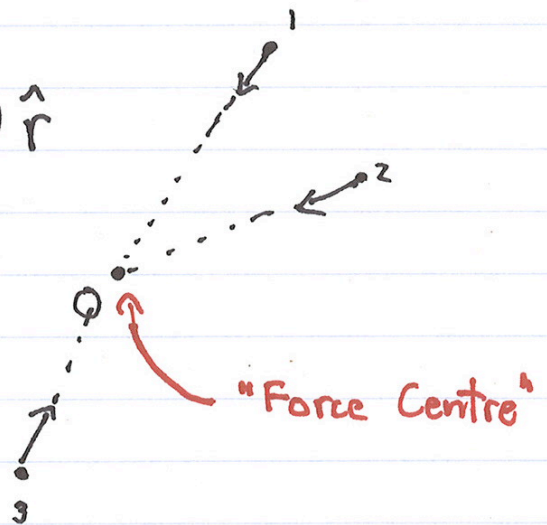 1
) r̂
2
O
"Force Centre"
3